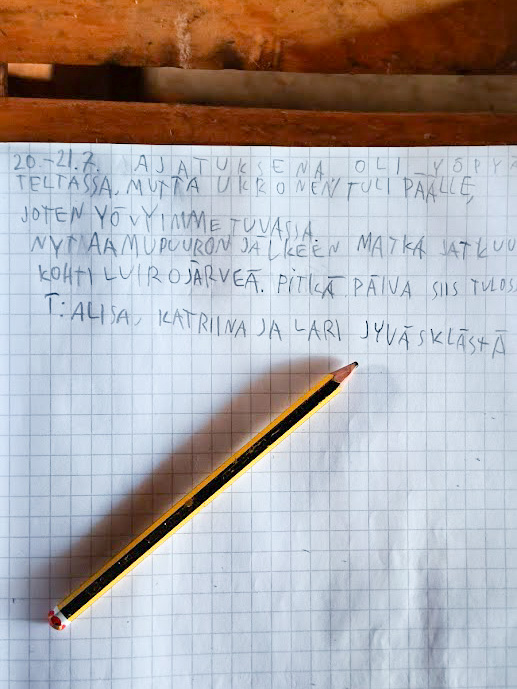 20.-21.7. AJATUKSENA OLI YÖPYÄ
TELTASSA, MUTTA UKRONEN TULI PÄÄLLE,
JOTEN YÖVYIMME TUVASSA.
NYT AAMUPUURON JÄLKEEN MATKA JATKUU
KOHTI LUIROJÄRVEÄ. PITKÄ PÄIVÄ SIIS TULOSS
T: ALISA, KATRIINA JA LARI JYVÄSKLÄSTÄ